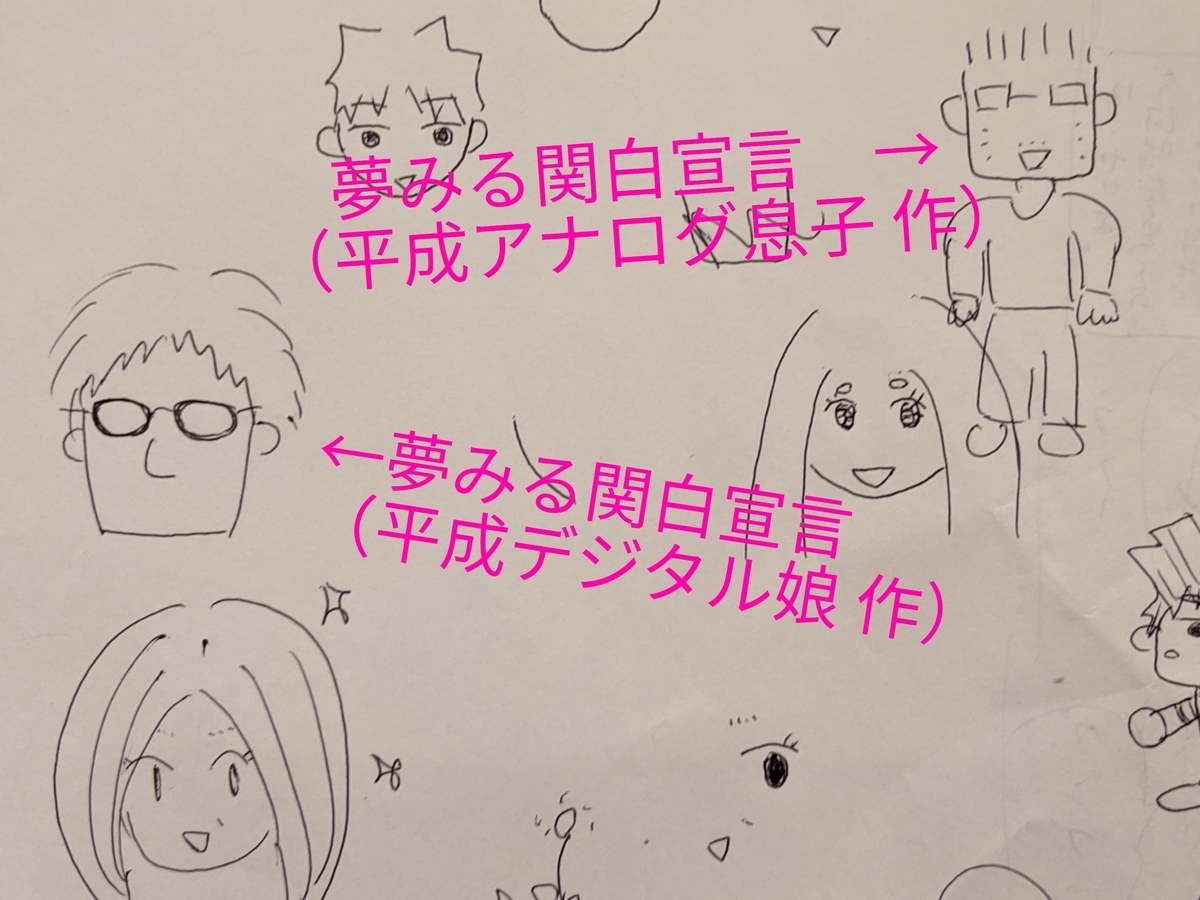 夢みる関白宣言 →
（平成アナログ息子 作）
←夢みる関白宣言
（平成デジタル娘 作）